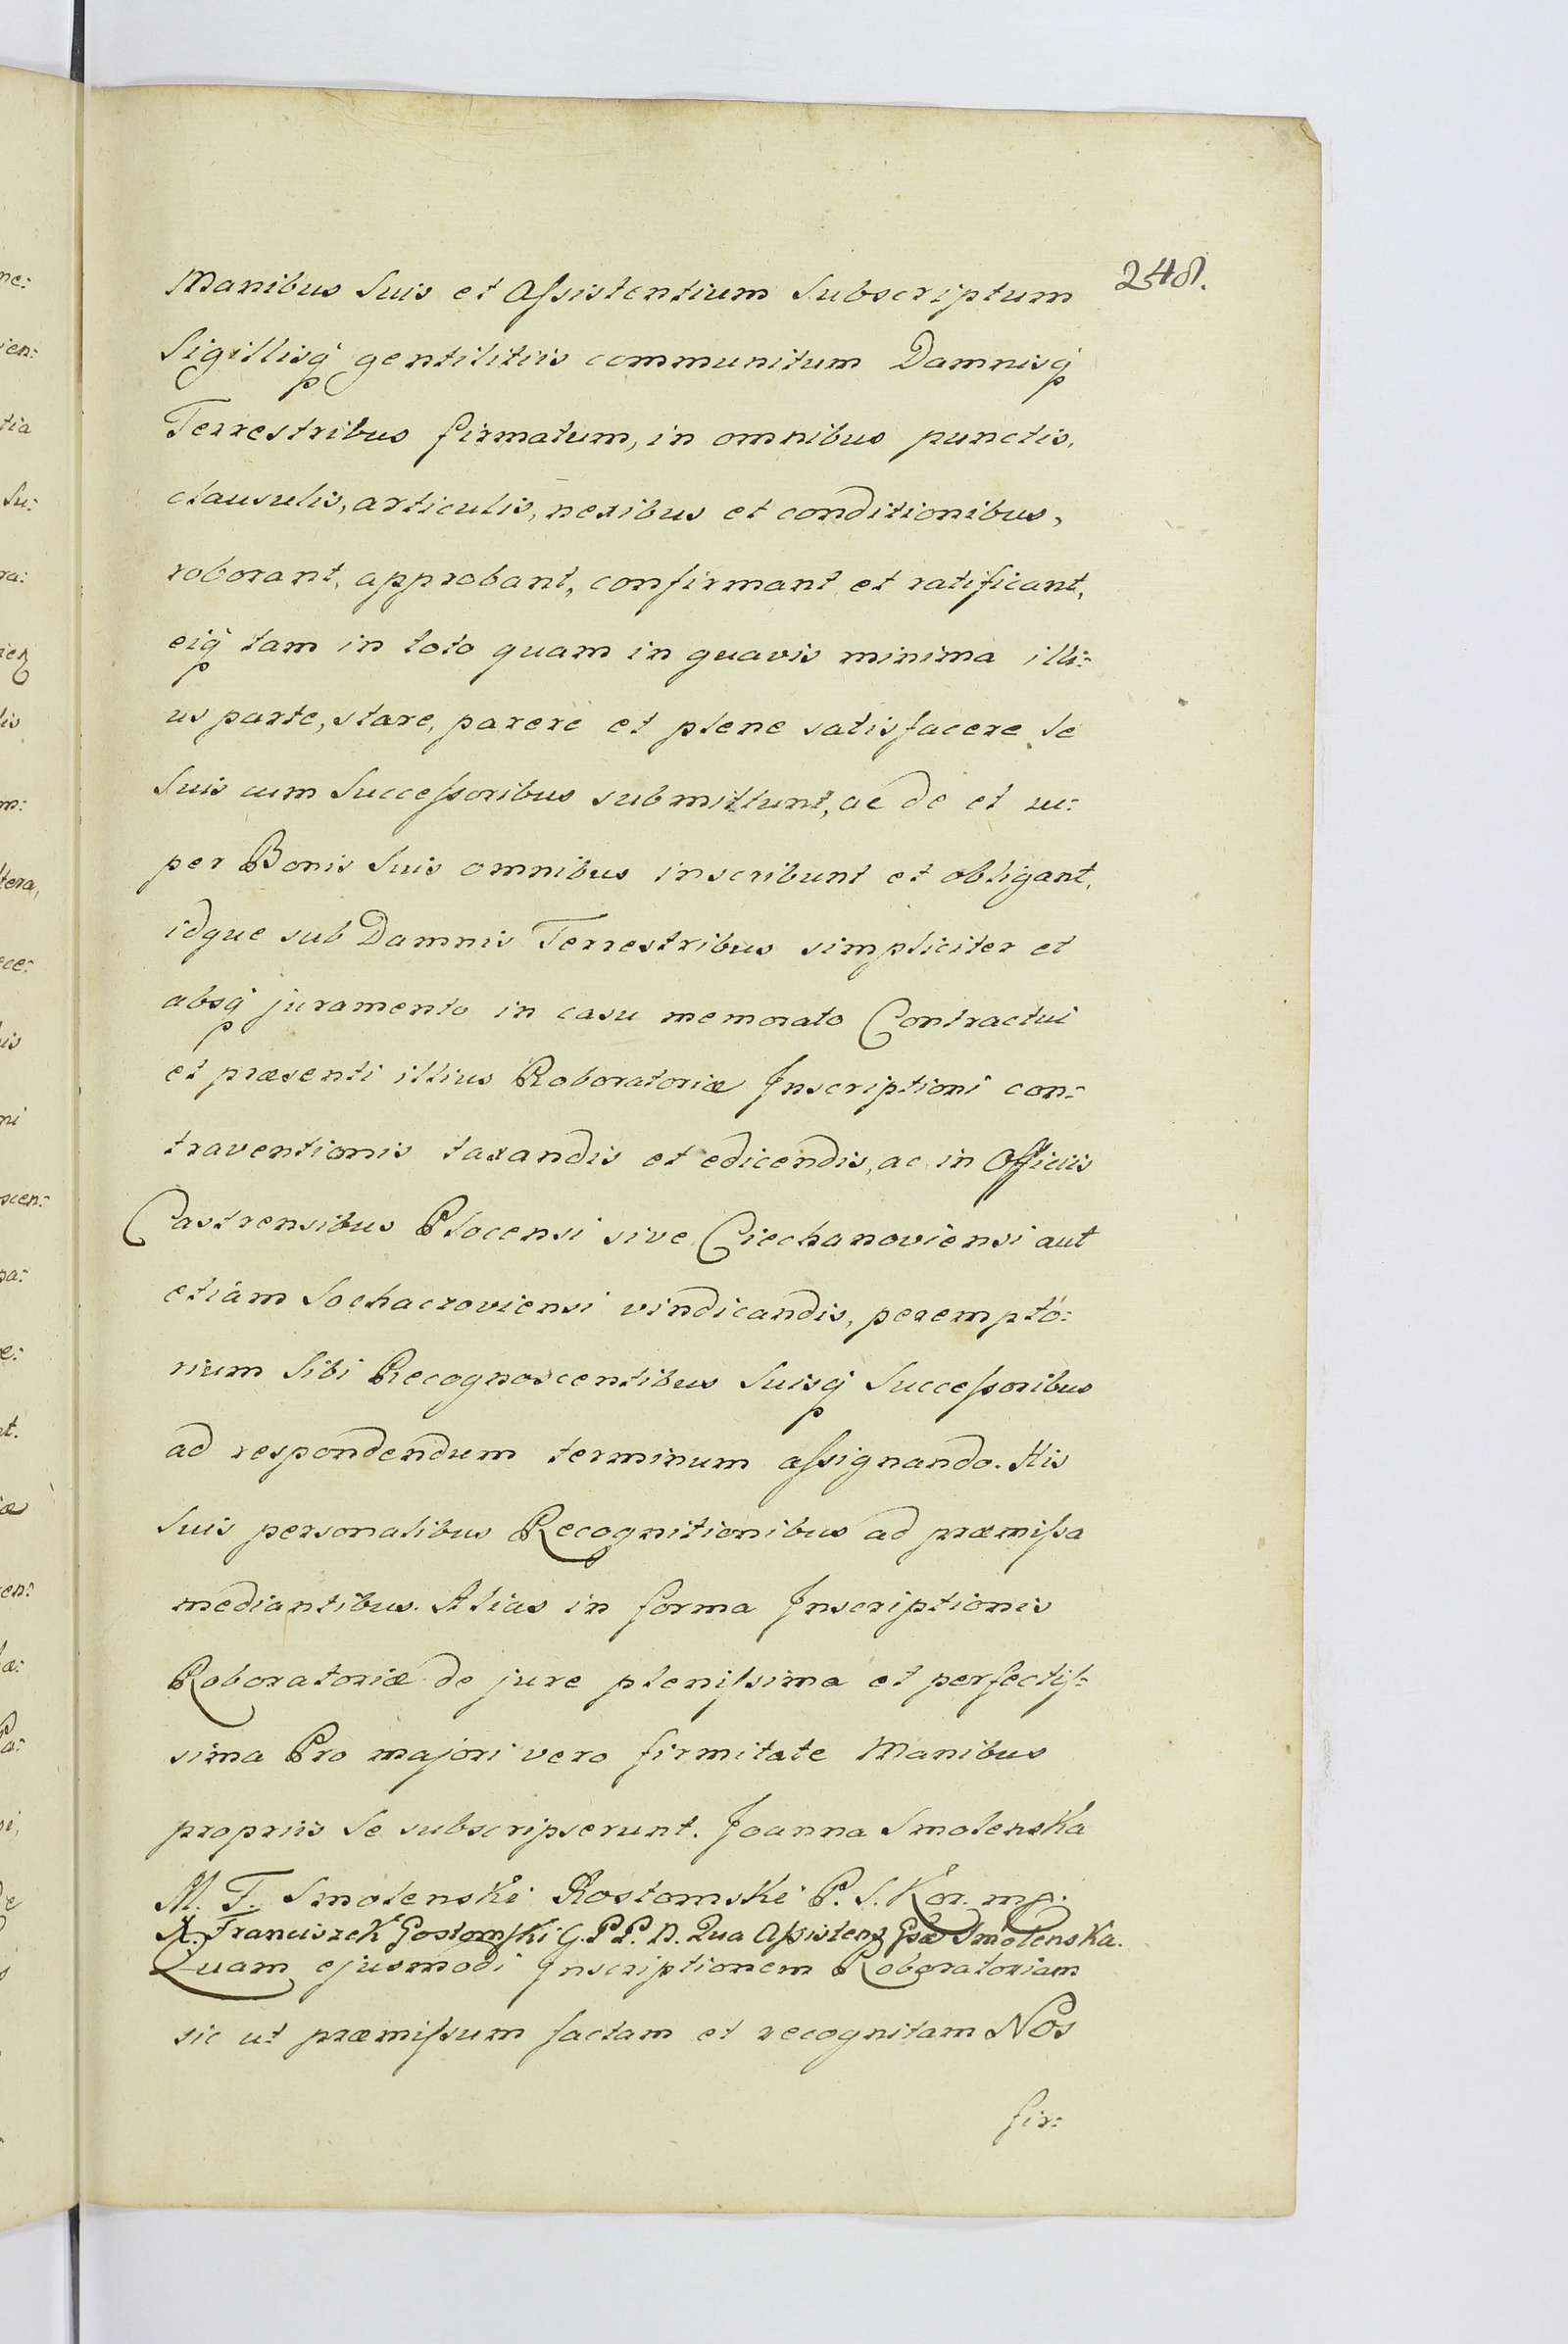 248.
Manibus Suis et Aſsistentium Subscriptum
Sigillisq gentilitiis communitum Damnisq
Terrestribus firmatum, in omnibus punctis,
clausulis, articulis, nexibus et conditionibus,
roborant, approbant, confirmant et ratificant,
eiq tam in toto quam in quavis minima illi:
us parte, stare, parere et plene satisfacere Se
Suis cum Succeſsoribus submittunt, ac de et su:
per Bonis Suis omnibus inscribunt et obligant,
idque sub Damnis Terrestribus simpliciter et
absq juramento in casu memorato Contractui
et præsenti illius Roboratoriæ Inscriptioni con:
traventionis taxandis et edicendis, ac in Officiis
Castrensibus Plocensi sive Ciechanoviensi aut
etiam Sochaczoviensi vindicandis, perempto:
rium Sibi Recognoscentibus Suisq Succeſsoribus
ad respondendum terminum aſsignando. His
Suis personalibus Recognitionibus ad præmiſsa
mediantibus. Alias in forma Inscriptionis
Roboratoriæ de jure pleniſsima et perfectiſ:
sima Pro majori vero firmitate Manibus
propriis Se subscripserunt. Joanna Smolenska
M. F. Smolenski Rostomski P. S. Kor. mp.
X. Franciszek Gostomſki G. P. P. D. Qua Aſsistens Gsæ Smolenska.
Quam ejusmodi Inscriptionem Roboratoriam
sic ut præmiſsum factam et recognitam Nos
fir: